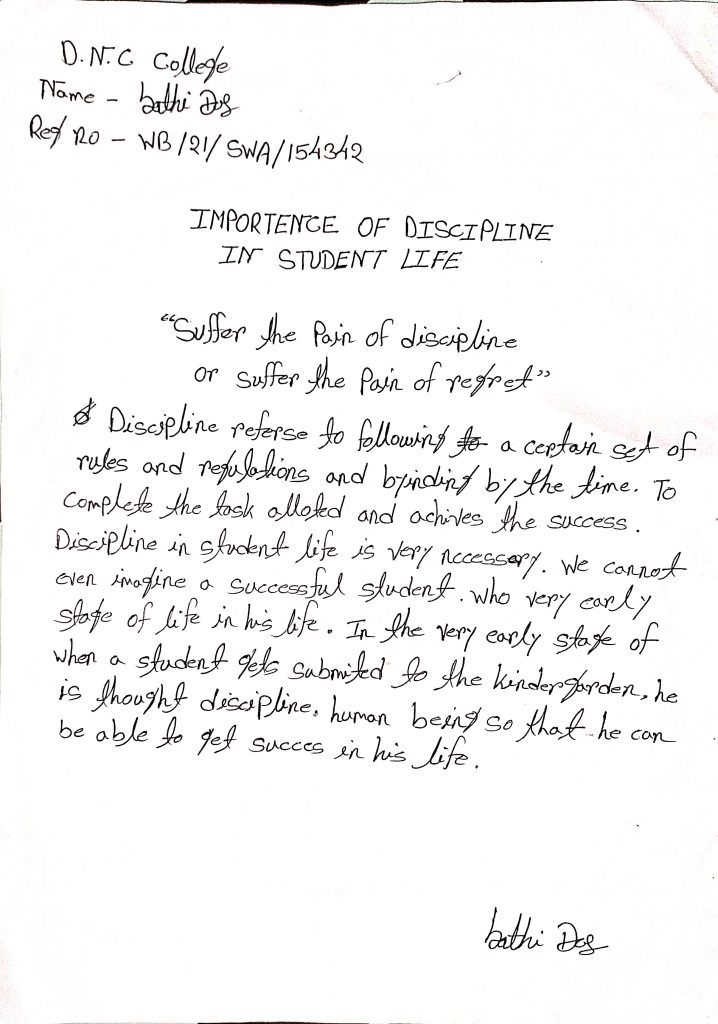 D.N.C College
Name - bathi Das
Reg no - WB/21/SWA/154342
IMPORTENCE OF DISCIPLINE
IN STUDENT LIFE
"Suffer the Pain of discipline
or suffer the Pain of regret"
Discipline referse to following to a certain set of
rules and regulations and byinding by the time. To
complete the task alloted and achives the success.
Discipline in student life is very nccessary. We cannot
even imagine a successful student. who very early
stage of life in his life. In the very early stage of
when a student gets submited to the kindergarden, he
is thought discipline, human being so that he can
be able to get succes in his life.
bathi Das